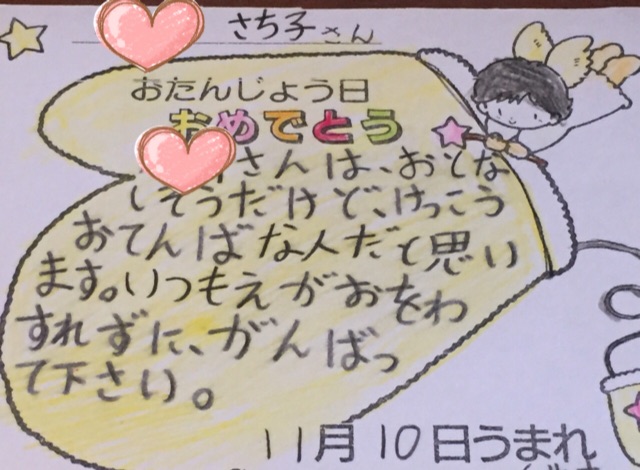 さち子さん
おたんじょう日
おめでとう
さんは、おとな
しそうだけど、けっこう
おてんばな人だと思い
ます。いつもえがおをわ
すれずに、がんばっ
て下さい。
11月10日うまれ